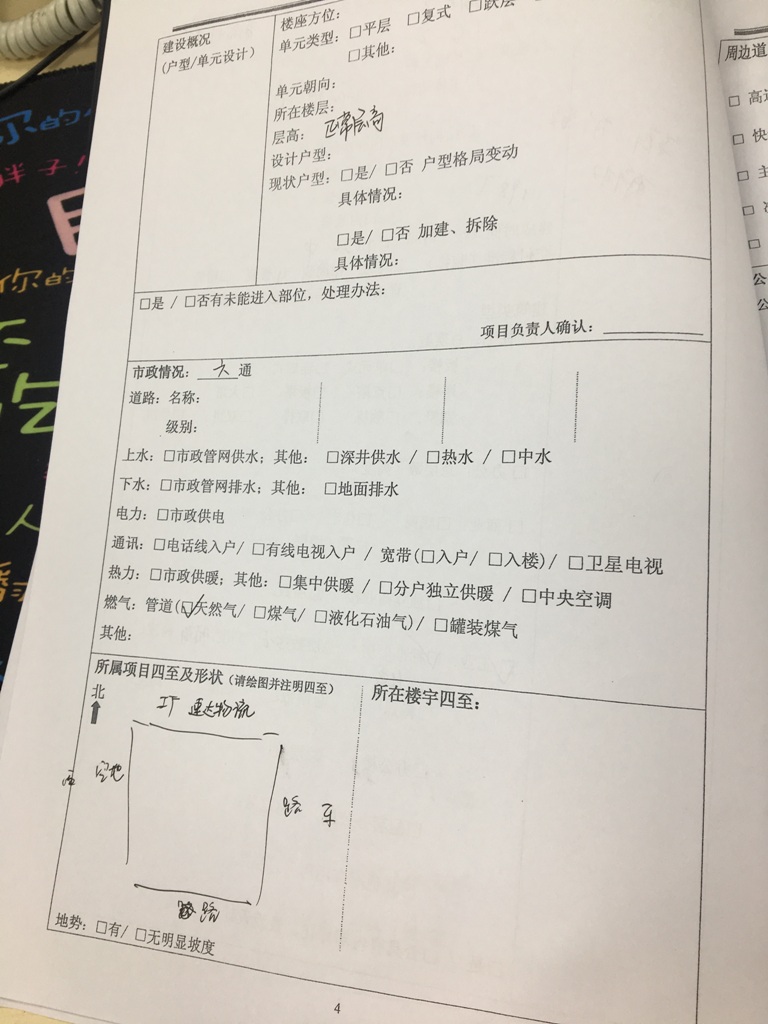 建设概况
(户型/单元设计)
楼座方位：
单元类型：□平层 □复式 □跃层
□其他：
单元朝向：
所在楼层：
层高： 正常层高
设计户型：
现状户型：□是/ □否 户型格局变动
具体情况：
□是/ □否 加建、拆除
具体情况：
□是 / □否有未能进入部位，处理办法：
项目负责人确认：
市政情况： 六 通
道路：名称：
级别：
上水：□市政管网供水；其他： □深井供水 / □热水 / □中水
下水：□市政管网排水；其他： □地面排水
电力：□市政供电
通讯：□电话线入户/ □有线电视入户 / 宽带(□入户/ □入楼)/ □卫星电视
热力：□市政供暖；其他：□集中供暖 / □分户独立供暖 / □中央空调
燃气：管道(☑天然气/ □煤气/ □液化石油气)/ □罐装煤气
其他：
所属项目四至及形状（请绘图并注明四至）
所在楼宇四至：
北
工厂 速达物流
空地
路 车
路
地势：□有/ □无明显坡度
4
周边道
□ 高速
□ 快
□ 主
□
□
公
公
你的
胖子！
你的
人